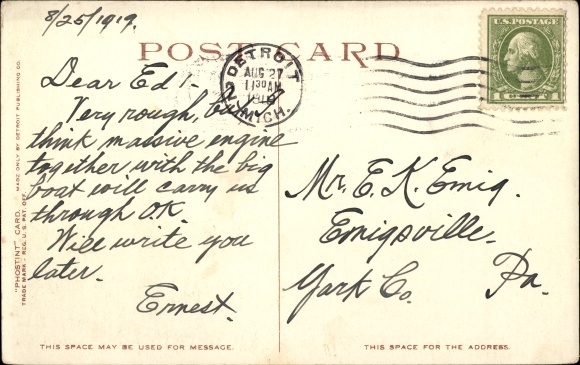 8/25/1919.
POST CARD
U.S. POSTAGE
DETROIT
AUG 27
11 30 AM
1919
MICH.
2
Dear Ed!
Very rough, but
think massive engine
together with the big
boat will carry us
through O.K.
Will write you
later.
Ernest.
Mr. E. K. Emig.
Emigsville.
York Co. Pa.
"PHOSTINT" CARD. MADE ONLY BY DETROIT PUBLISHING CO.
TRADE MARK - REG. U.S. PAT. OFF.
THIS SPACE MAY BE USED FOR MESSAGE.
THIS SPACE FOR THE ADDRESS.